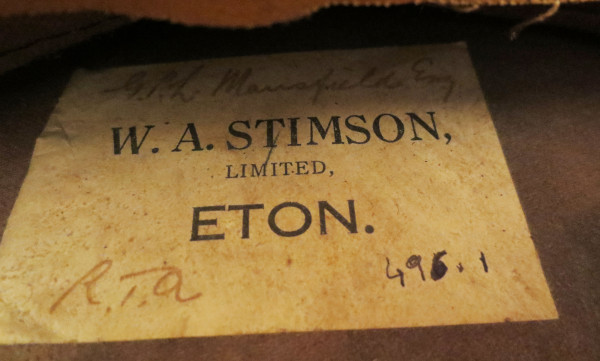 G.P.L. Mansfield Esq
W. A. STIMSON,
LIMITED,
ETON.
R.T.A 496.1